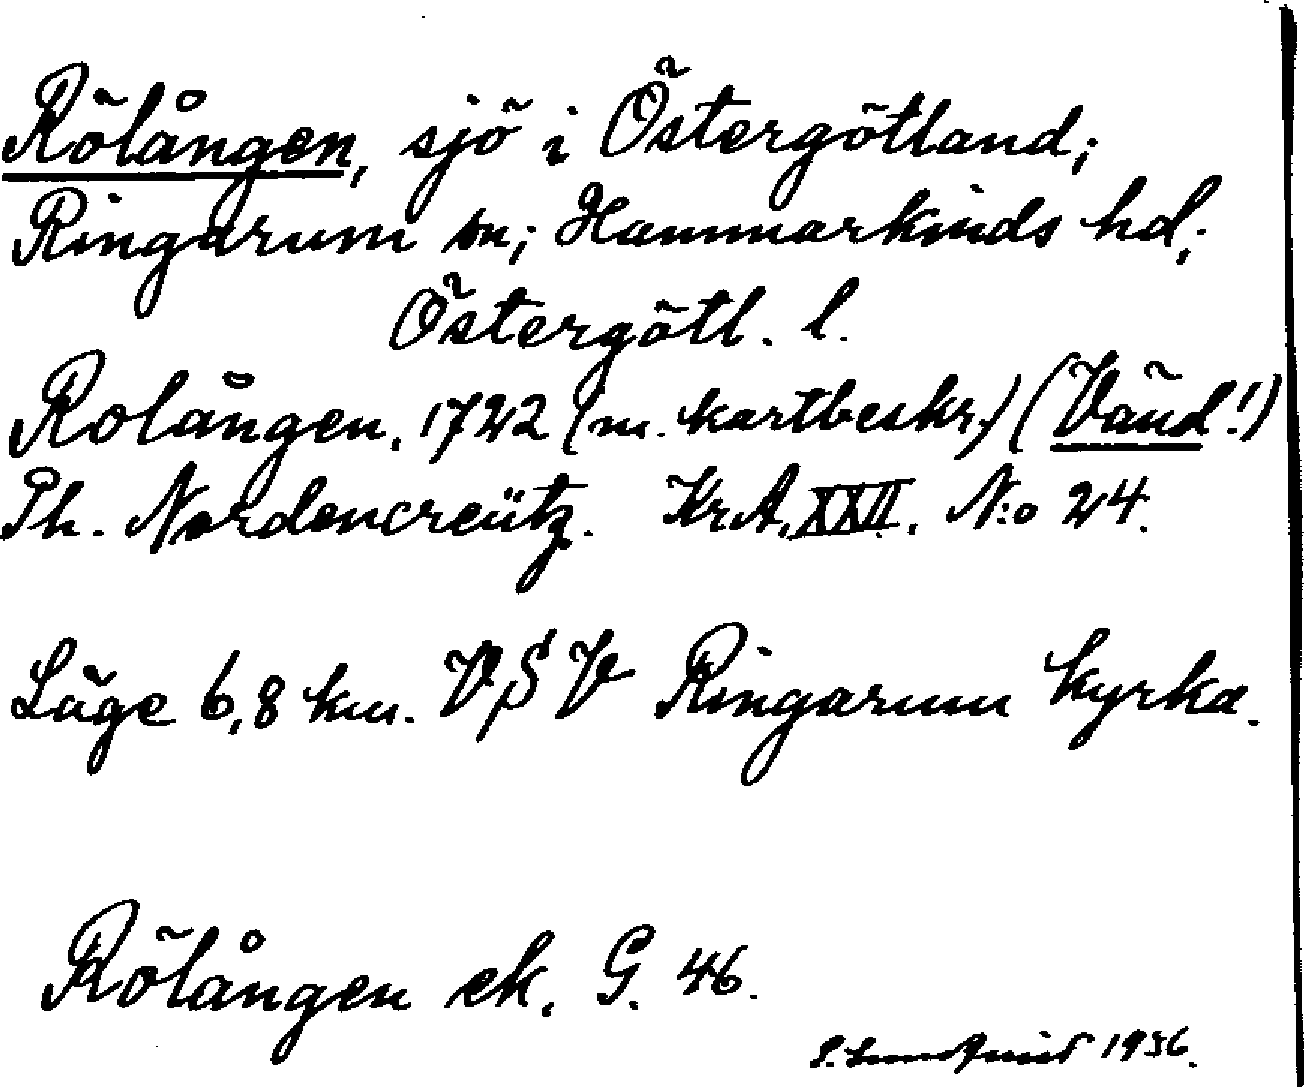 Rölången, sjö i Östergötland;
Ringarum sn; Hammarkinds hd,
Östergötl. l.
Rolången, 1722 (m. kartbeskr.) (Vänd!)
Ph. Nordencreütz. KrA, XXII. N:o 24.
Läge 6,8 km. VSV Ringarum kyrka.
Rölången ek. G. 46.
S. Lundquist 1936.